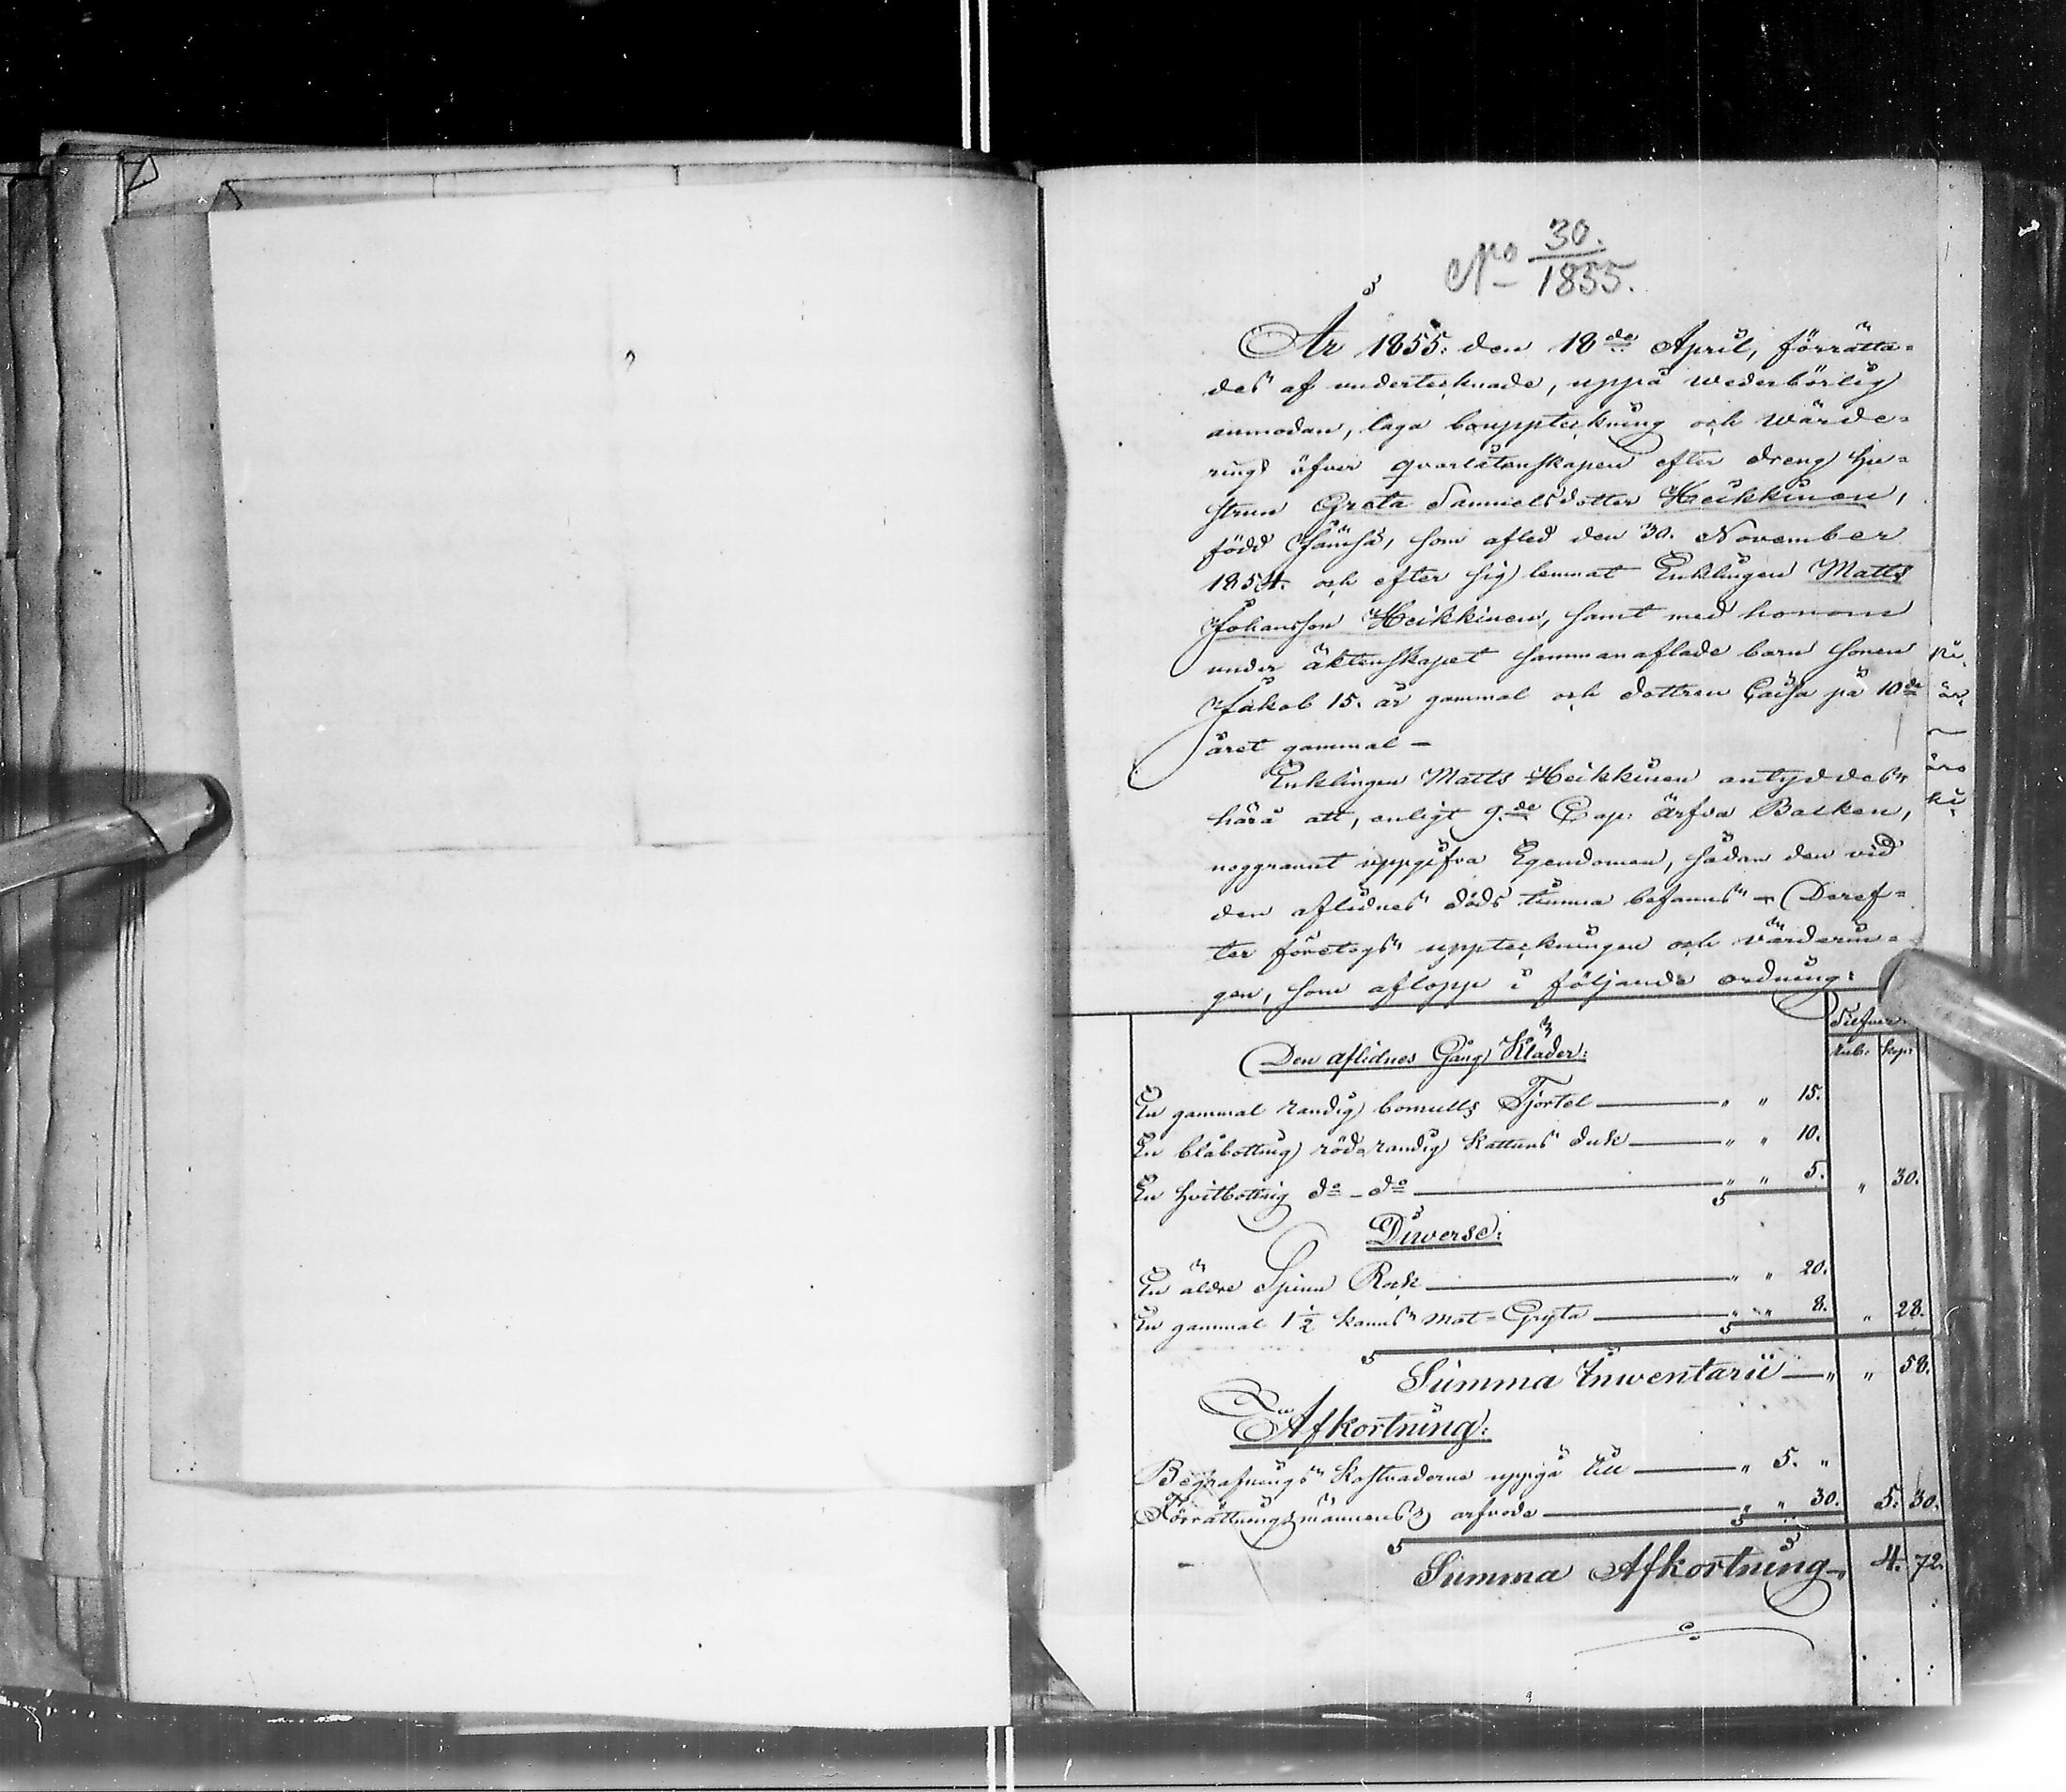 No 30./1855.
År 1855. den 18de April, förrätta=
des af undertecknade, uppå wederbörlig
anmodan, laga bouppteckning och wärde=
ring öfver qvarlåtenskapen efter dreng hu=
strun Greta Samuelsdotter Heikkinen,
född Jämsä, som afled den 30. November
1854. och efter sig lemnat Enklingen Matts
Johansson Heikkinen, samt med honom
under äktenskapet sammanaflade barn sonen
Jakob 15. år gammal och dottren Caisa på 10de
året gammal —
Enklingen Matts Heikkinen antyddes
härå att, enligt 9.de Cap: ärfda Balken,
noggrannt uppgifva Egendomen, sådan den vid
den aflidnes döds timma befanns — Deref=
ter företogs uppteckningen och värderin=
gen, som aflopp i följande ordning:
Silfver
Rub. Kop:
Den aflidnes Gång Kläder:
En gammal randig bomulls Tjortel — " " 15.
En blåbottnig röd randig Kattuns duk — " " 10.
En hvitbottnig do – do — " " 5. " 30.
Diverse:
En äldre Spinn Rock — " " 20.
En gammal 1 1/2 kanns mat=Gryta — " " 8. " 28.
Summa Inwentarii — " " 58.
Afkortning:
Begrafnings Kostnaderne uppgå till — " 5. "
Förrättningsmännens arfvode — " " 30. 5. 30.
Summa Afkortning — 4. 72.